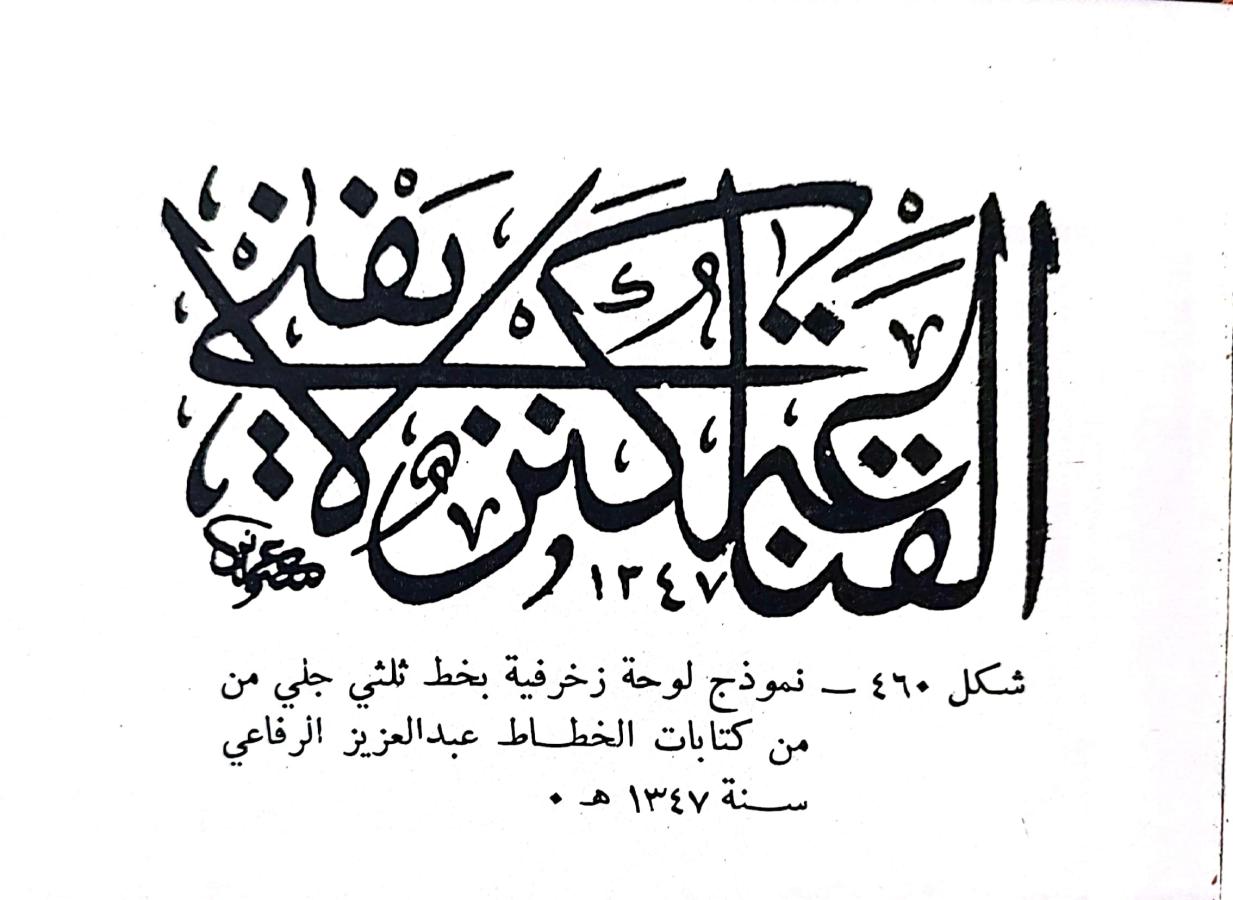 القناعة كنز لا يفنى
١٣٤٧
شكل ٤٦٠ — نموذج لوحة زخرفية بخط ثلثي جلي من
من كتابات الخطاط عبدالعزيز الرفاعي
سنة ١٣٤٧ هـ ٠